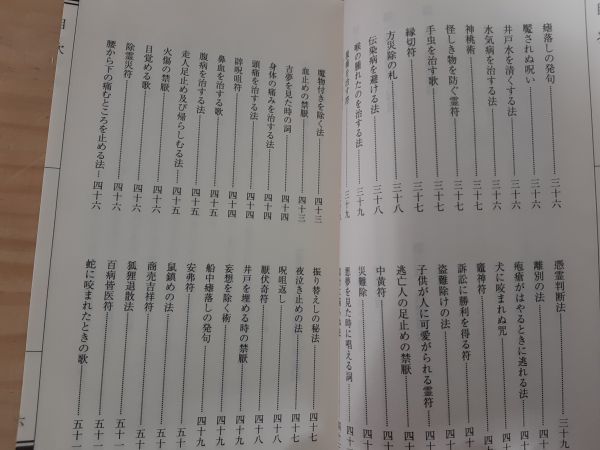 目次
瘧落しの発句……三十六
魘されぬ呪い……三十六
井戸水を清くする法……三十六
水気病を治する法……三十六
神桃術……三十七
怪しき物を防ぐ霊符……三十七
手虫を治す歌……三十七
縁切符……三十七
方災除の札……三十八
伝染病を避ける法……三十八
喉の腫れたのを治する法……三十九
憑霊判断法……三十九
離別の法
疱瘡がはやるときに逃れる法
犬に咬まれぬ咒
竈神符
訴訟に勝利を得る符
盗難除けの法
子供が人に可愛がられる霊符
逃亡人の足止めの禁厭
中黄符
災難除
悪夢を見た時に唱える詞
魔物付きを除く法……四十三
血止めの禁厭……四十三
吉夢を見た時の詞……四十四
身体の痛みを治する法……四十四
頭痛を治する法……四十四
辟呪詛符……四十四
鼻血を治する歌……四十五
腹病を治する法……四十五
走人足止め及び帰らしむる法……四十五
火傷の禁厭……四十五
目覚める歌……四十六
除霊災符……四十六
腰から下の痛むところを止める法……四十六
振り替えしの秘法……四十七
夜泣き止めの法……四十七
呪咀返し……四十八
厭伏奇符……四十八
井戸を埋める時の禁厭……四十八
妄想を除く術……四十九
船中瘧落しの発句……四十九
安弗符……四十九
鼠鎮めの法……五十
商売吉祥符……五十
狐狸退散法……五十
百病皆医符……五十一
蛇に咬まれたときの歌……五十一
目次
六